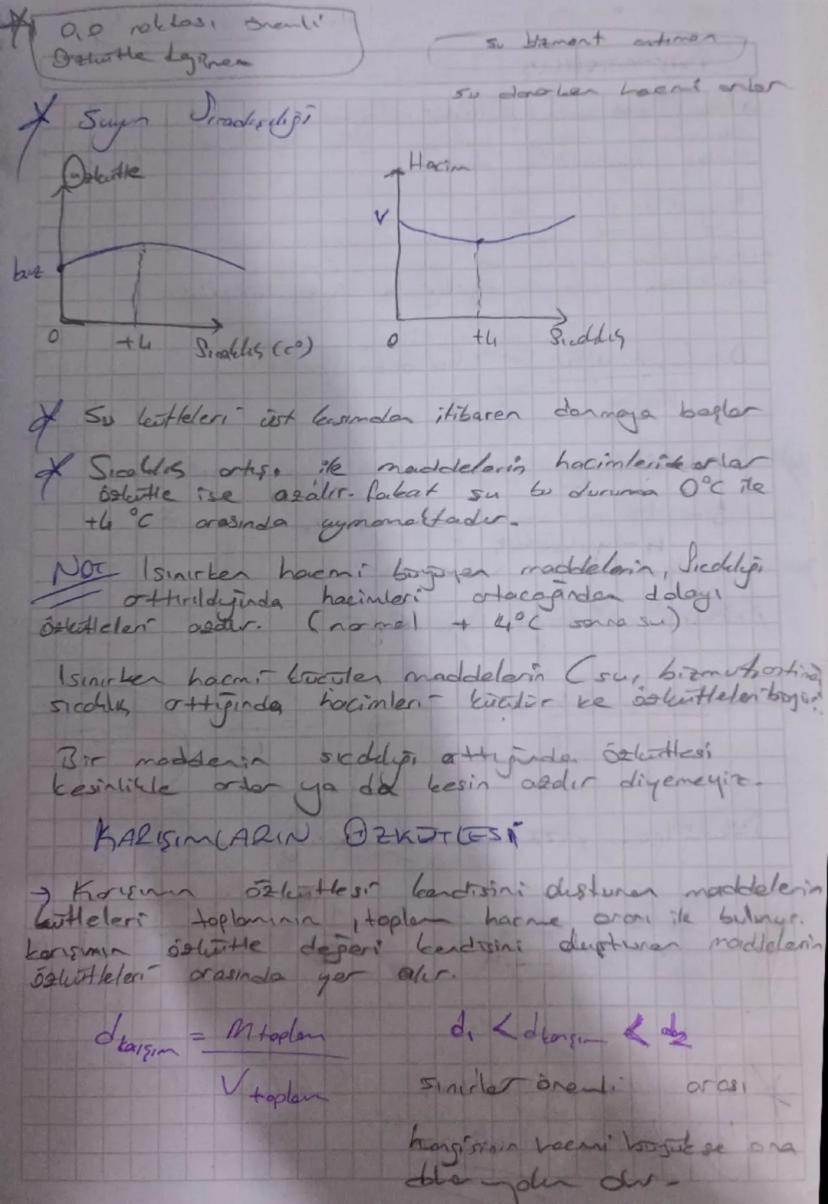 0,0 noktası önemli
Özkütle değişen
su bizmut antimon
su donarken hacmi artar
Suyun Sıradışılığı
Özkütle
Hacim
V
buz
0
+4
Sıcaklık (c°)
0
+4
Sıcaklık
Su kütleleri üst kısımdan itibaren donmaya başlar
Sıcaklık artışı ile maddelerin hacimleri artar
özkütle ise azalır. Fakat su bu duruma 0°C ile
+4 °C arasında uymamaktadır.
NOT Isınırken hacmi büyüyen maddelerin, Sıcaklığı
arttırıldığında hacimleri artacağından dolayı
özkütleleri azalır. (normal + 4°C sonra su)
Isınırken hacmi küçülen maddelerin (su, bizmut
sıcaklık arttığında hacimleri küçülür ve özkütleleri büyür.
Bir maddenin sıcaklığı arttığında özkütlesi
kesinlikle artar ya da kesin azalır diyemeyiz.
KARIŞIMLARIN ÖZKÜTLESİ
→ Karışımın özkütlesi kendisini oluşturan maddelerin
kütleleri toplamının, toplam hacme oranı ile bulunur.
karışımın özkütle değeri kendisini oluşturan maddelerin
özkütleleri arasında yer alır.
d karışım = m toplam / V toplam
d₁ < d karışım < d₂
sınırlar önemli arası
hangisinin hacmi büyükse ona
daha yakın olur.